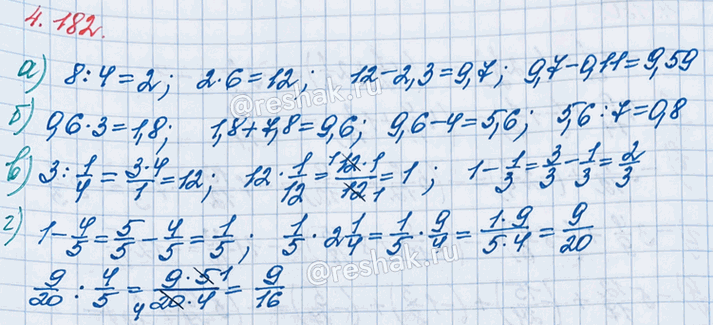 4.182.
а) 8:4=2; 2·6=12; 12-2,3=9,7; 9,7-0,11=9,59
б) 0,6·3=1,8; 1,8+7,8=9,6; 9,6-4=5,6; 5,6:7=0,8
в) 3:1/4=3·4/1=12; 12·1/12=12·1/12·1=1; 1-1/3=3/3-1/3=2/3
г) 1-4/5=5/5-4/5=1/5; 1/5·2 1/4=1/5·9/4=1·9/5·4=9/20
9/20:4/5=9·5/20·4=9/16
@reshak.ru
@reshak.ru